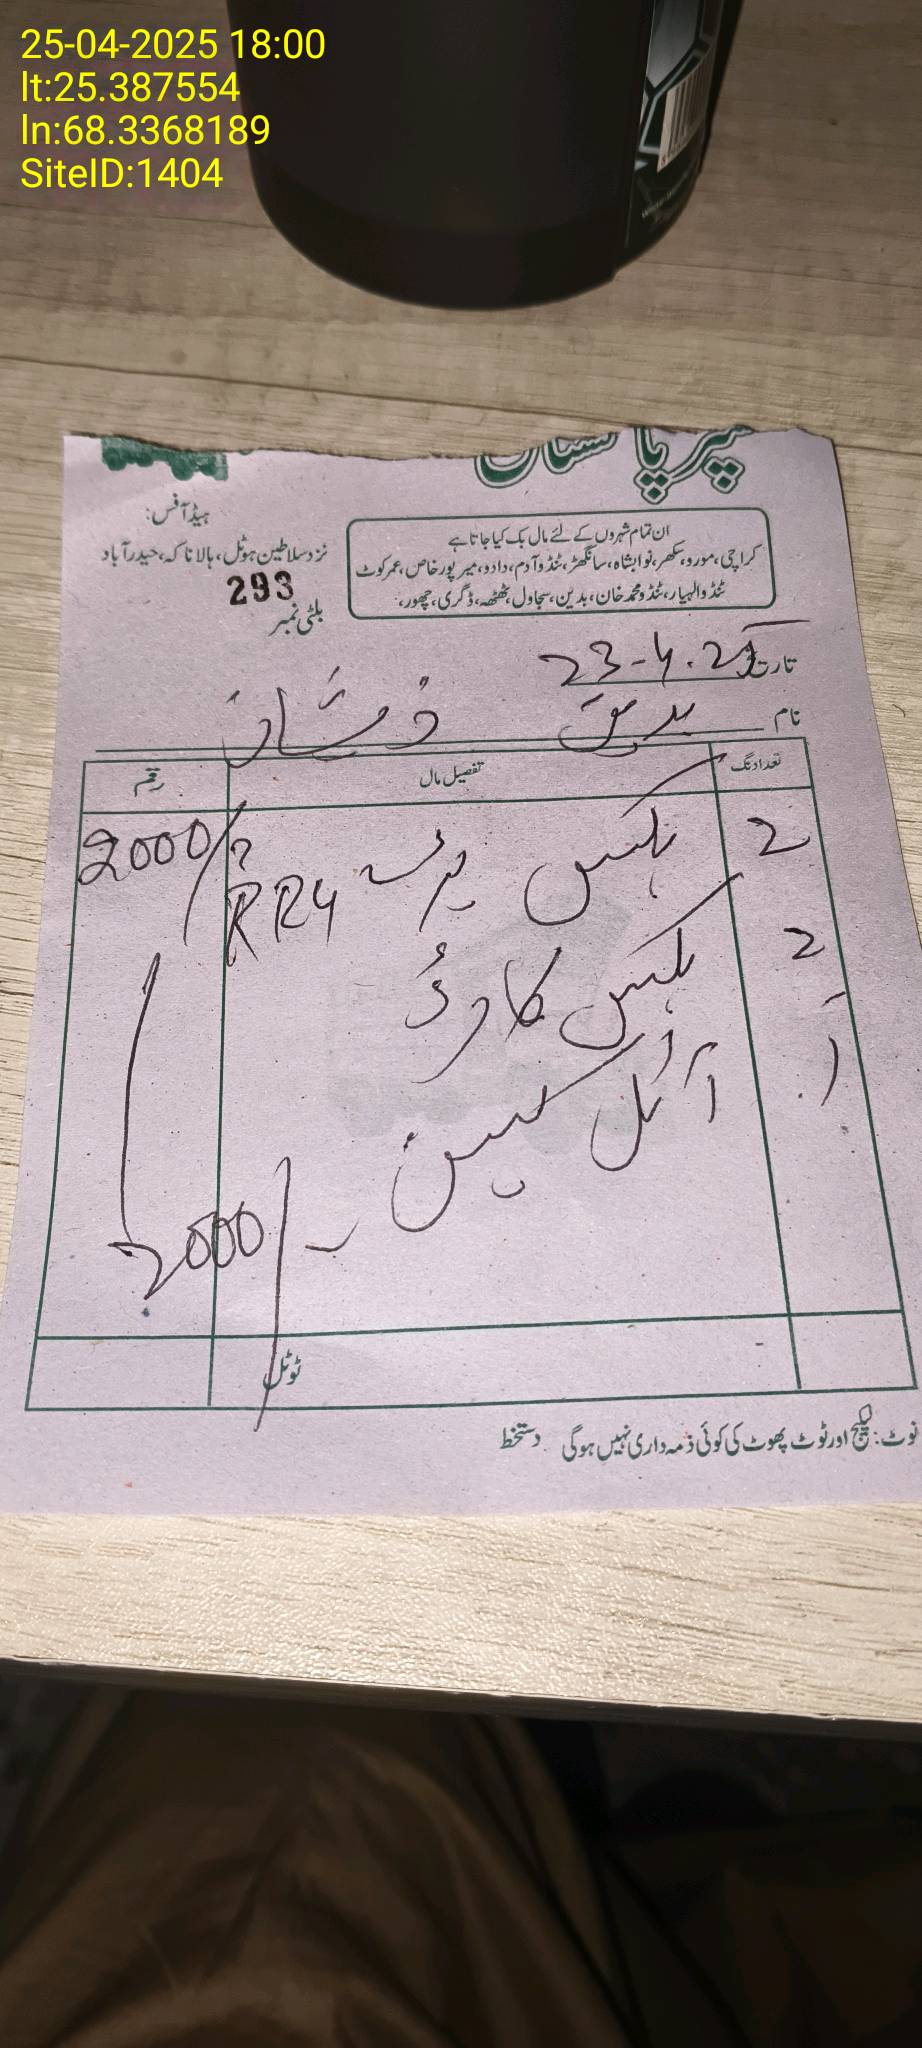 25-04-2025 18:00
lt:25.387554
ln:68.3368189
SiteID:1404
سپر پاکستان
ہیڈ آفس:
نزد سلاطین ہوٹل، ہالا ناکہ، حیدرآباد
ان تمام شہروں کے لئے مال بک کیا جاتا ہے
کراچی، مورو، سکھر، نوابشاہ، سانگھڑ، ٹنڈوآدم، دادو، میرپورخاص، عمرکوٹ
ٹنڈوالہیار، ٹنڈومحمدخان، بدین، سجاول، ٹھٹھہ، ڈگری، جھور،
293
بلٹی نمبر
تاریخ 23-4-25
نام ذیشان
تعداد نگ تفصیل مال رقم
2 بکس RR4 2000/
2 بکس کارڈ
1 آئل کین
2000/
ٹوٹل
نوٹ: لیکج اور ٹوٹ پھوٹ کی کوئی ذمہ داری نہیں ہوگی دستخط